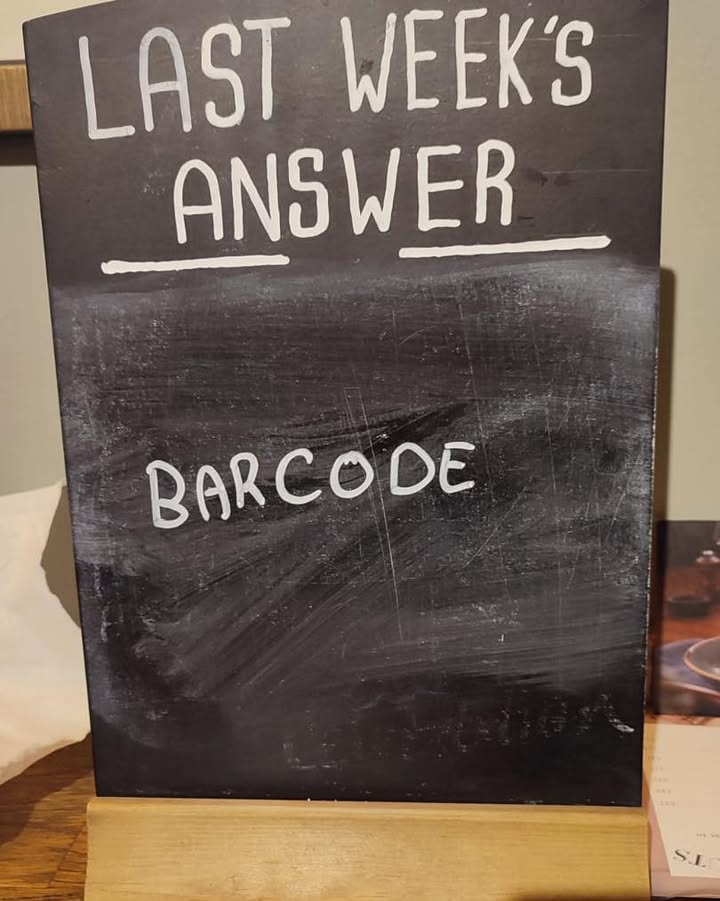 LAST WEEK'S
ANSWER
BARCODE